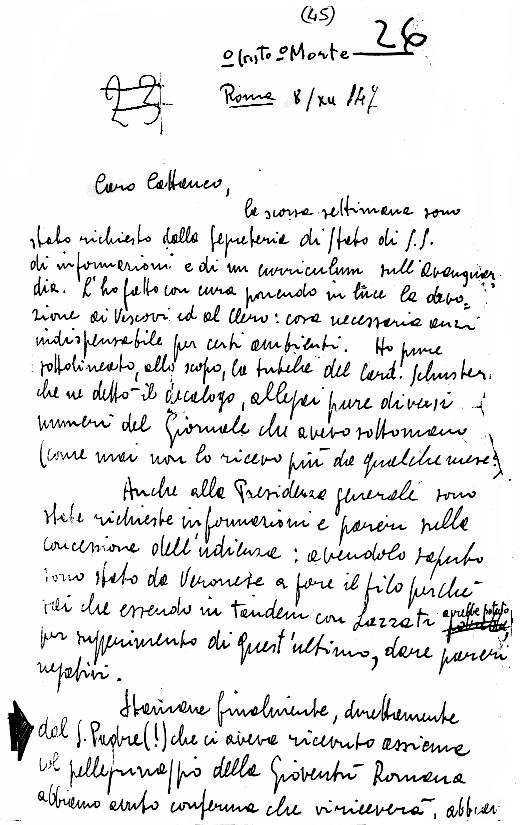 (45)
26
o Cristo o Morte
23
Roma 8/XII 947
Caro Cattaneo,
la scorsa settimana sono
stato richiesto dalla Segreteria di Stato di S.S.
di informazioni e di un curriculum sull'Avanguar-
dia. L'ho fatto con cura ponendo in luce la devo-
zione ai Vescovi ed al Clero: cosa necessaria anzi
indispensabile per certi ambienti. Ho pure
sottolineato, allo scopo, la tutela del Card. Schuster
che ne dettò il decalogo, allegai pure diversi
numeri del Giornale che avevo sottomano
(come mai non lo ricevo più da qualche mese?)
Anche alla Presidenza generale sono
state richieste informazioni e pareri sulla
concessione dell'udienza: avendolo saputo
sono stato da Veronese a fare il filo perchè
sai che essendo in tandem con Lazzati avrebbe potuto,
per suggerimento di quest'ultimo, dare pareri
negativi.
Stamane finalmente, direttamente
dal S. Padre (!) che ci aveva ricevuto assieme
col pellegrinaggio della Gioventù Romana
abbiamo avuto conferma che vi riceverà, abbia-